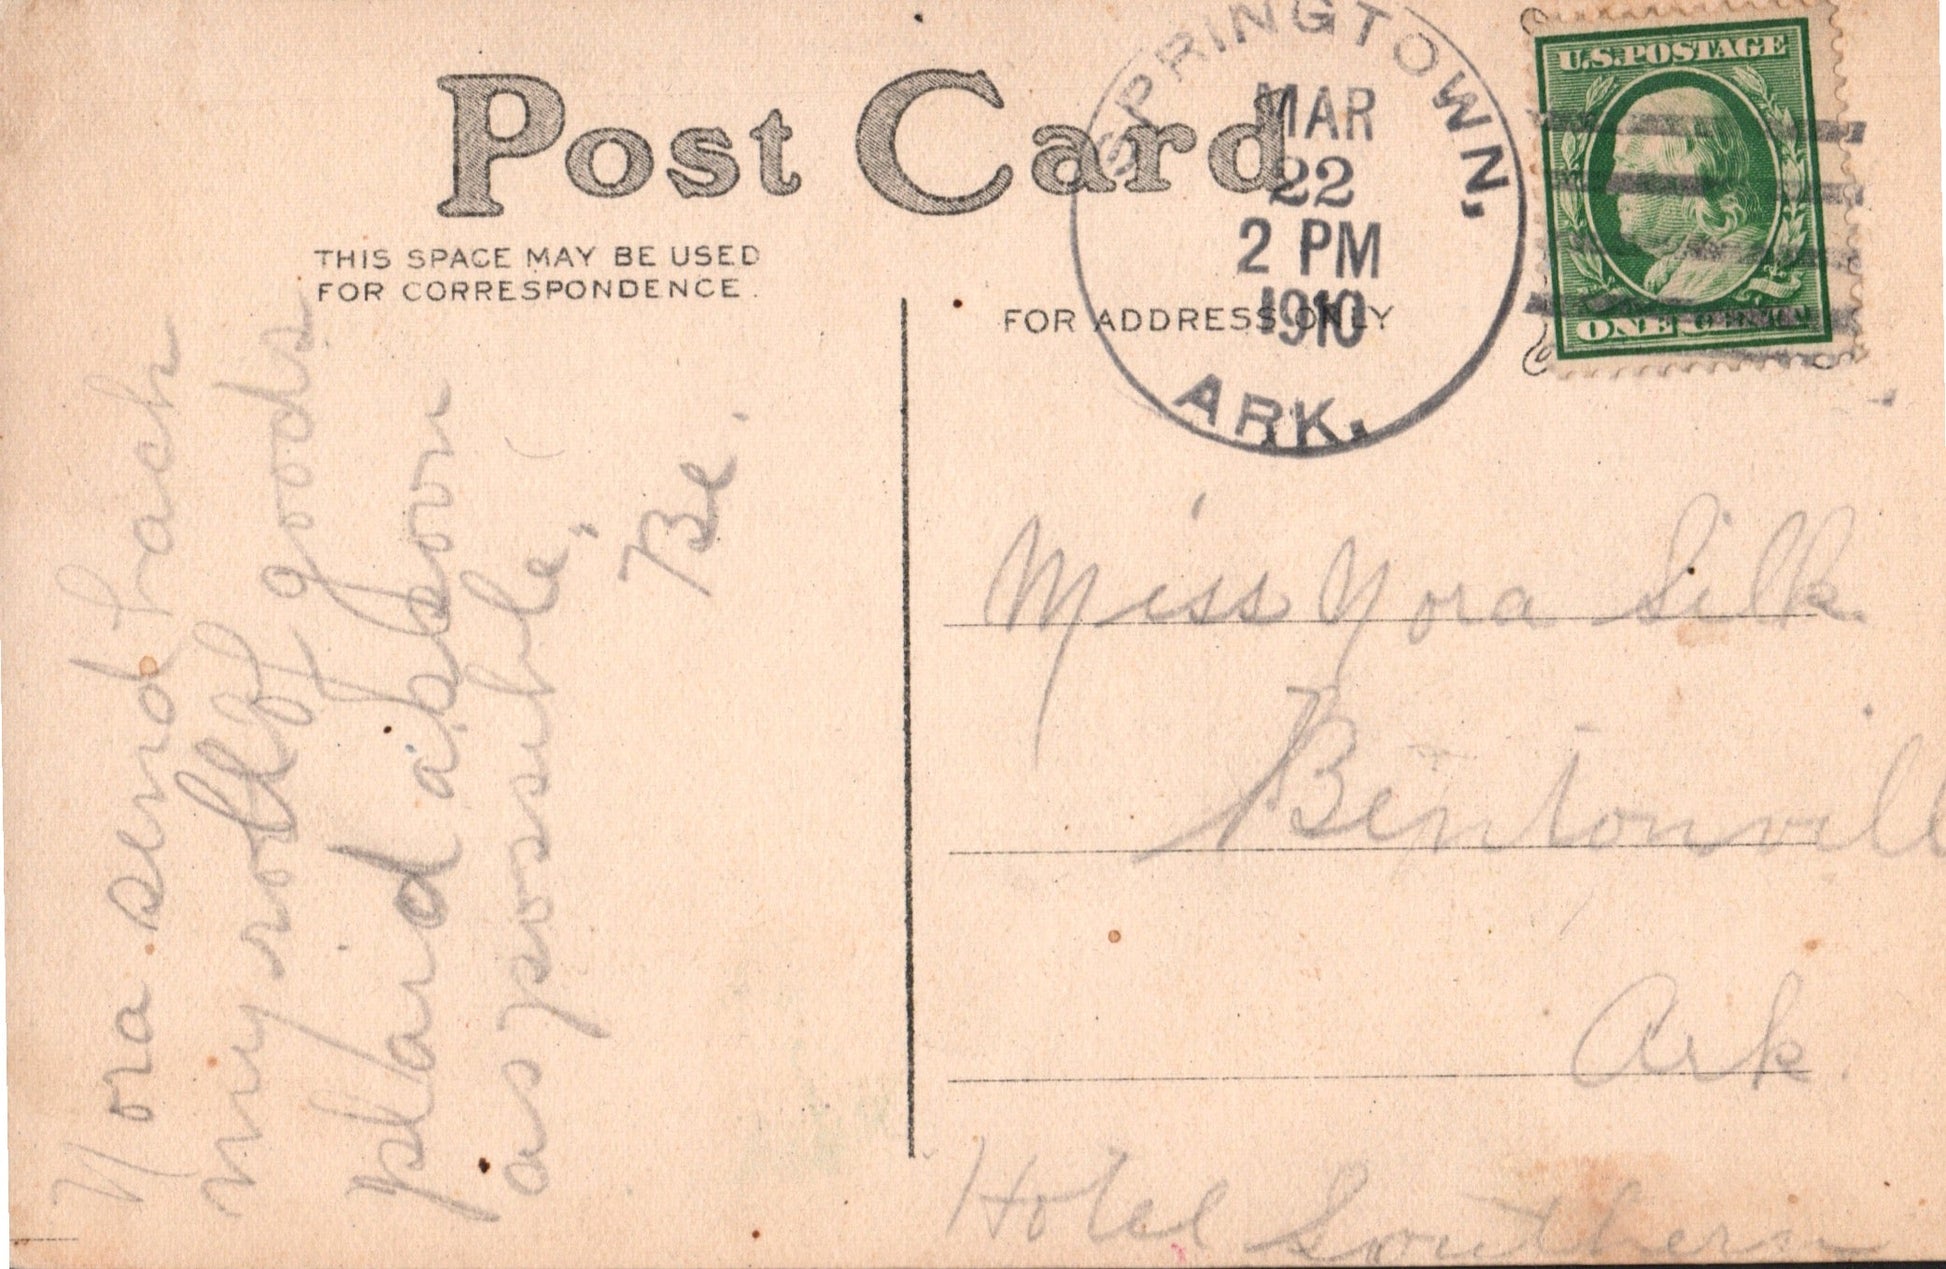 Post Card
THIS SPACE MAY BE USED
FOR CORRESPONDENCE.
FOR ADDRESS ONLY
SPRINGTOWN,
MAR
22
2 PM
1910
ARK.
U.S. POSTAGE
ONE CENT
Nora send back
my roll of goods
plaid as soon
as possible,
Be.
Miss Nora Silk
Bentonvill
Ark
Hotel Southern